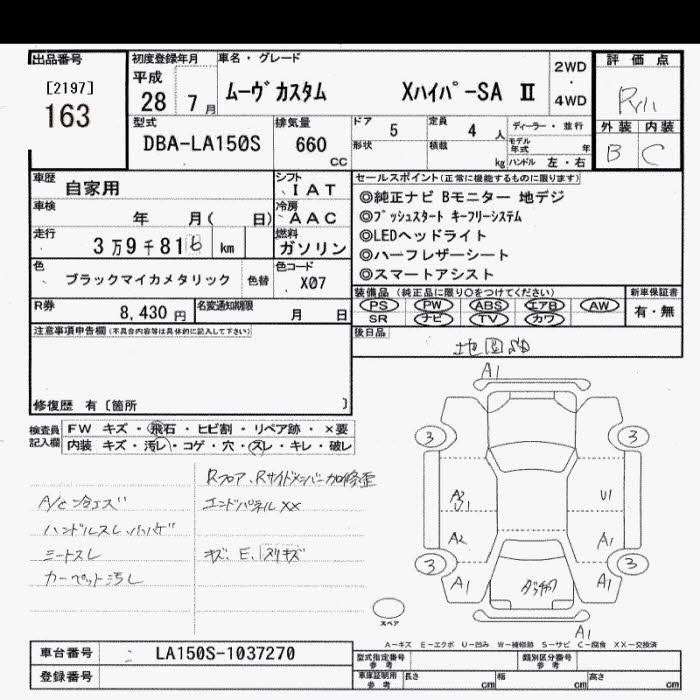 出品番号
[2197]
163
初度登録年月
平成
28 7月
車名・グレード
ムーヴカスタム XハイパーSA Ⅱ
2WD
・
4WD
評価点
外装 内装
B C
型式
DBA-LA150S
排気量
660
CC
ドア
5
定員
4 人
ディーラー・並行
形状
積載
kg
モデル年式 年
ハンドル 左・右
車歴
自家用
シフト
IAT
車検
年 月( 日)
冷房
AAC
走行
3万9千816 km
燃料
ガソリン
色
ブラックマイカメタリック
色替
色コード
X07
R券
8,430 円
名変通知期限
月 日
セールスポイント(正常に機能するものに限ります)
◎純正ナビ Bモニター 地デジ
◎プッシュスタート キーフリーシステム
◎LEDヘッドライト
◎ハーフレザーシート
◎スマートアシスト
装備品(純正品に限り○をつけてください)
PS PW ABS エアB AW
SR ナビ TV カワ
新車保証書
有・無
後日品
地図SD
注意事項申告欄(不具合内容等は具体的に記入して下さい)
修復歴 有〔箇所 〕
検査員記入欄
FW キズ・飛石・ヒビ割・リペア跡・×要
内装 キズ・汚レ・コゲ・穴・スレ・キレ・破レ
Rフロア、Rサイドメンバー加修歪
エンドパネルXX
A/C冷エズ
ハンドルスレ、ハハゲ
シートスレ
カーペット汚レ
キズ、E、スリキズ
A1
3 3
U1
A2 A1
3 3
A1 A1
A1
スペア
A－キズ E－エクボ U－凹み W－補修跡 S－サビ C－腐食 XX－交換済
車台番号
LA150S-1037270
登録番号
型式指定番号
参考
類別区分番号
参考
車庫証明用
参考
長さ cm
幅 cm
高さ cm